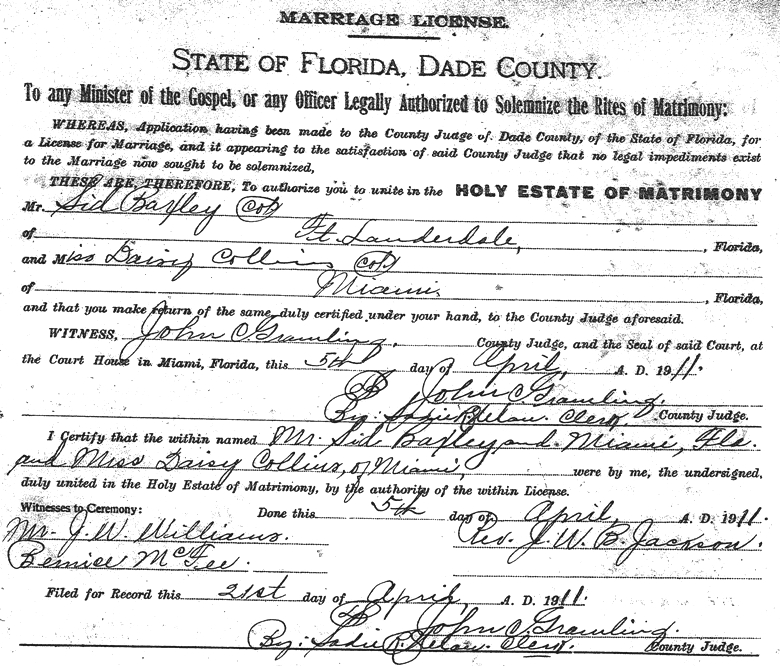 MARRIAGE LICENSE.
STATE OF FLORIDA, DADE COUNTY.
To any Minister of the Gospel, or any Officer Legally Authorized to Solemnize the Rites of Matrimony:
WHEREAS, Application having been made to the County Judge of Dade County, of the State of Florida, for
a License for Marriage, and it appearing to the satisfaction of said County Judge that no legal impediments exist
to the Marriage now sought to be solemnized,
THESE ARE, THEREFORE, To authorize you to unite in the HOLY ESTATE OF MATRIMONY
Mr. Sid Baxley (Col)
of Ft. Lauderdale, , Florida,
and Miss Daisy Collins (Col)
of Miami, , Florida,
and that you make return of the same, duly certified under your hand, to the County Judge aforesaid.
WITNESS, John C Gramling. County Judge, and the Seal of said Court, at
the Court House in Miami, Florida, this 5th day of April, A. D. 1911.
John C Gramling.
By: Sadie R. Clerk. County Judge.
I Certify that the within named Mr. Sid Baxley and Miami, Fla.
and Miss Daisy Collins, of Miami, were by me, the undersigned,
duly united in the Holy Estate of Matrimony, by the authority of the within License.
Witnesses to Ceremony: Done this 5th day of April, A. D. 1911.
Mr. J. W. Williams. Rev. J. W. B. Jackson.
Bernice McFee.
Filed for Record this 21st day of April, A. D. 1911.
John C Gramling.
By: Sadie R. Clerk. County Judge.